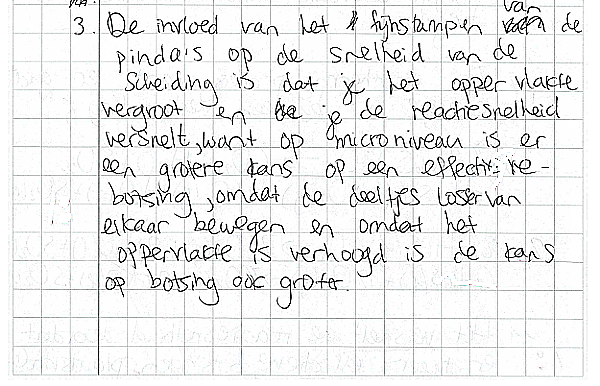 3. De invloed van het fijnstampen van de
pinda's op de snelheid van de
Scheiding is dat je het oppervlakte
vergroot en je de reactiesnelheid
versnelt, want op microniveau is er
een grotere kans op een effectieve-
botsing, omdat de deeltjes losser van
elkaar bewegen en omdat het
oppervlakte is verhoogd is de kans
op botsing ook groter.